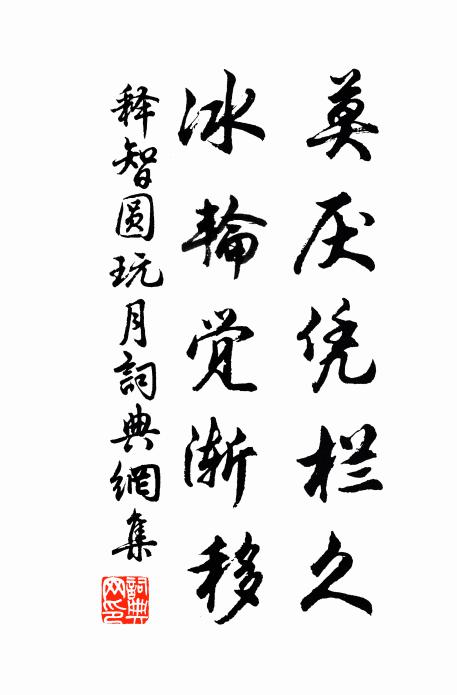 莫厌凭栏久
冰輪觉渐移
释智圆玩月詞典網集
詞典網印